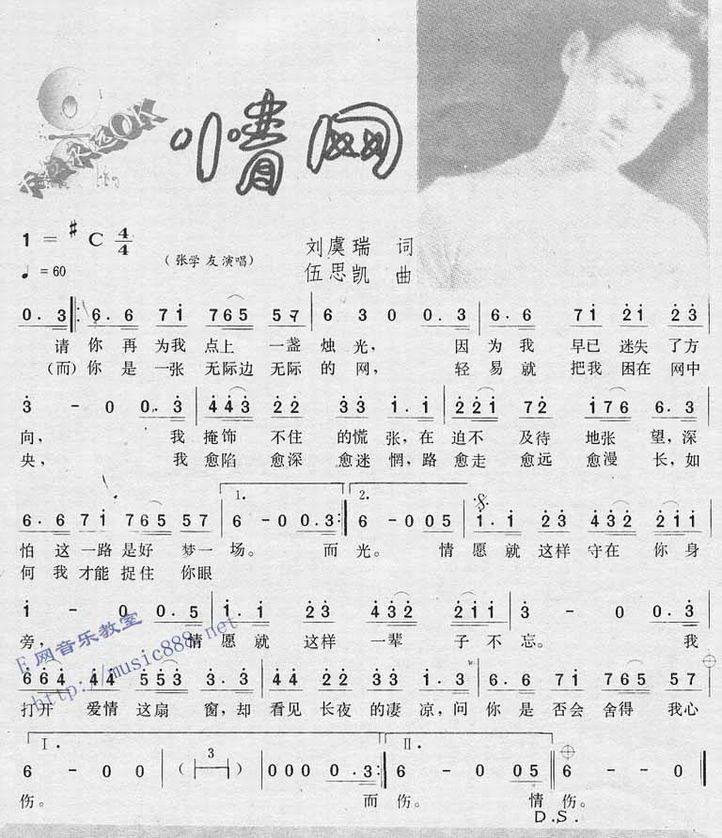 情网
1 = #C 4/4
♩ = 60
(张学友演唱)
刘虞瑞 词
伍思凯 曲
0. 3 6. 6 7 1 7 6 5 5 7 6 3 0 0. 3 6. 6 7 1 2 1 2 3
请 你 再 为我 点上 一盏 烛光, 因 为我 早已 迷失 了方
(而)你 是 一张 无际边 无际 的 网, 轻 易就 把我 困在 网中
3 - 0 0. 3 4 4 3 2 2 3 3 1. 1 2 2 1 7 2 1 7 6 6. 3
向, 我 掩饰 不住 的慌 张,在 迫不 及待 地张 望,深
央, 我 愈陷 愈深 愈迷 惘,路 愈走 愈远 愈漫 长,如
1. 2.
6. 6 7 1 7 6 5 5 7 6 - 0 0. 3 6 - 0 0 5 1. 1 2 3 4 3 2 2 1 1
怕 这 一路 是好 梦一 场。 而光。 情 愿就 这样 守在 你 身
何 我 才能 捉住 你眼
1 - 0 0. 5 1. 1 2 3 4 3 2 2 1 1 3 - 0 0. 3
旁, 情 愿就 这样 一辈 子 不 忘。 我
6 6 4 4 4 5 5 3 3. 3 4 4 3 3 4 3 2 1. 3 6. 6 7 1 7 6 5 5 7
打开 爱情 这扇 窗,却 看见 长夜 的凄 凉,问 你 是 否会 舍得 我心
I. 3 II.
6 - 0 0 ( ) 0 0 0 0. 3 6 - 0 0 5 6 - - 0
伤。 而伤。 情伤。
D.S.
E网音乐教室
http://music888.net